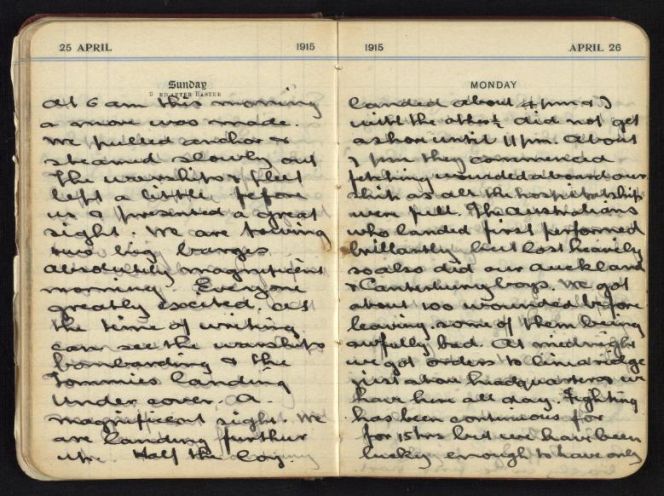 25 APRIL 1915
Sunday
AFTER EASTER
At 6 am this morning
a move was made.
We pulled anchor &
steamed slowly out
The warships & fleet
left a little before
us & presented a great
sight. We are towing
two big barges
Absolutely magnificent
morning. Everyone
greatly excited. At
the time of writing
can see the warships
bombarding & the
Tommies landing
under cover. A
magnificent sight. We
are landing further
up. Half the Coy.
1915 APRIL 26
MONDAY
landed about 4 pm & I
with the others did not get
ashore until 11 pm. About
7 pm they commenced
fetching wounded aboard our
ship as all the hospital ships
were full. The Australians
who landed first performed
brilliantly but lost heavily
so also did our Auckland
& Canterbury boys. We got
about 100 wounded before
leaving. some of them being
awfully bad. At midnight
we got orders to line ridge
just above headquarters we
have been all day. Fighting
has been continuous for
for 15 hrs but we have been
lucky enough to have only